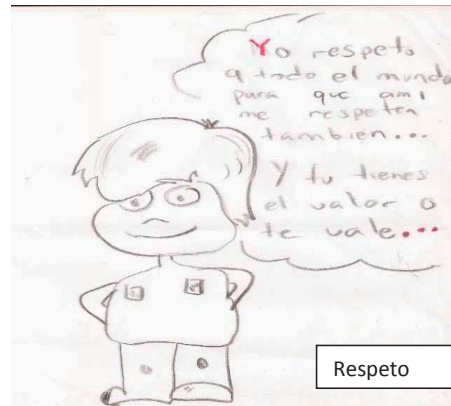 Yo respeto
a todo el mundo
para que ami
me respeten
tambien...
Y tu tienes
el valor o
te vale...
Respeto